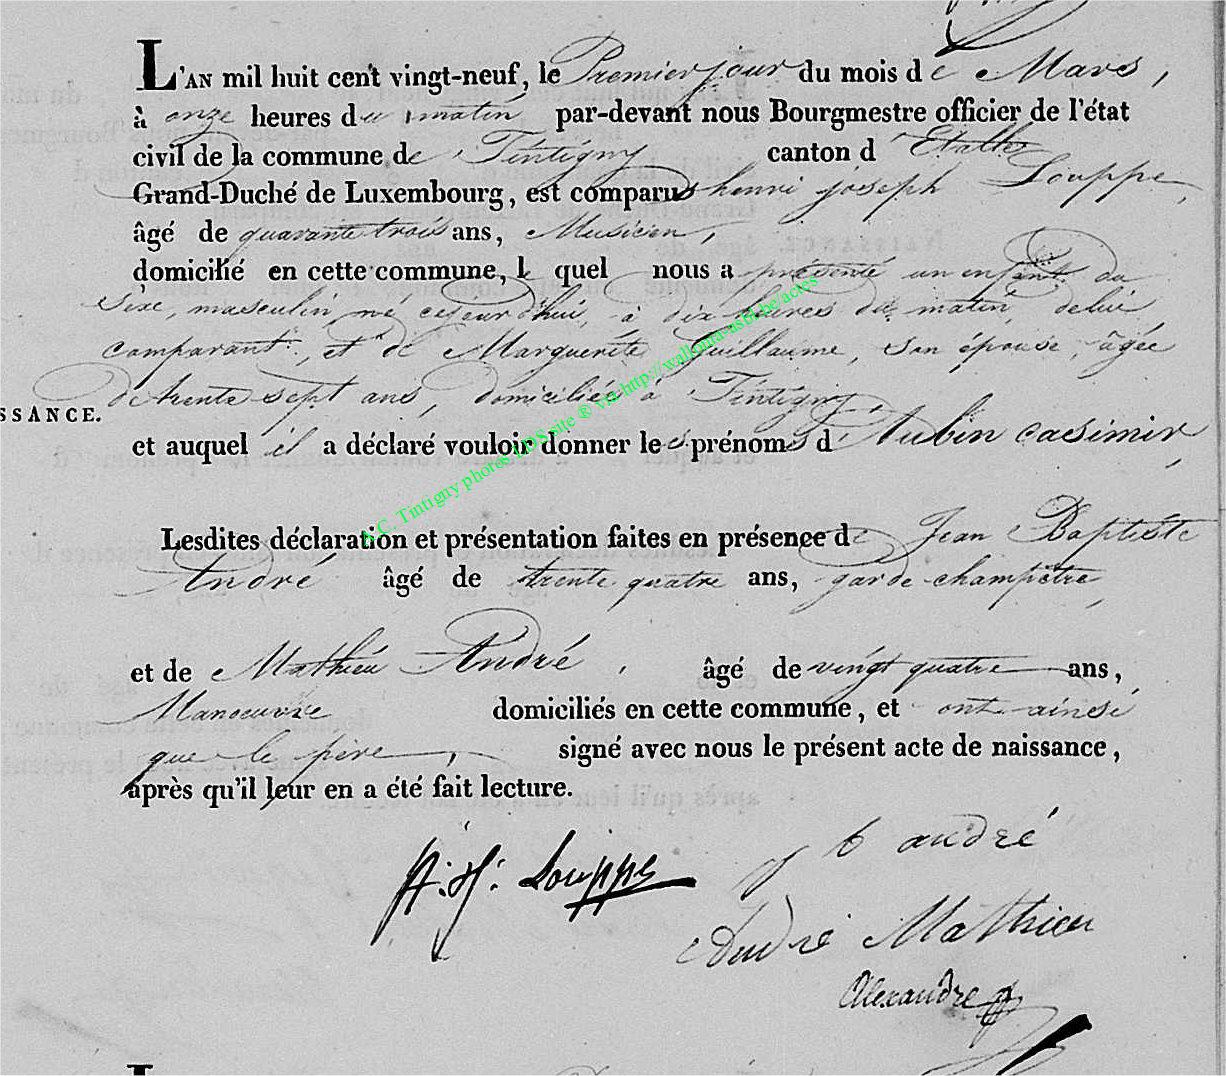 L'AN mil huit cent vingt-neuf, le Premier jour du mois de Mars,
à onze heures du matin par-devant nous Bourgmestre officier de l'état
civil de la commune de Tintigny canton d'Etalle
Grand-Duché de Luxembourg, est comparu henri joseph Louppe,
âgé de quarante trois ans, Musicien,
domicilié en cette commune, lequel nous a présenté un enfant du
Sèxe, masculin né cejourd'hui, à dix heures du matin, de lui
comparant, et de Marguerite Guillaume, son épouse âgée
de trente sept ans, domiciliée à Tintigny
SSANCE.
et auquel il a déclaré vouloir donner les prénoms d'Aubin casimir,
Lesdites déclaration et présentation faites en présence de Jean Baptiste
André âgé de trente quatre ans, garde champètre,
et de Mathieu André, âgé de vingt quatre ans,
Manoeuvre domiciliés en cette commune, et ont ainsi
que le père, signé avec nous le présent acte de naissance,
après qu'il leur en a été fait lecture.
A.C. Tintigny photos LDS site ® via http://wallonia-asbl.be/actes
H. J. Louppe
J b andré
André Mathieu
Alexandre